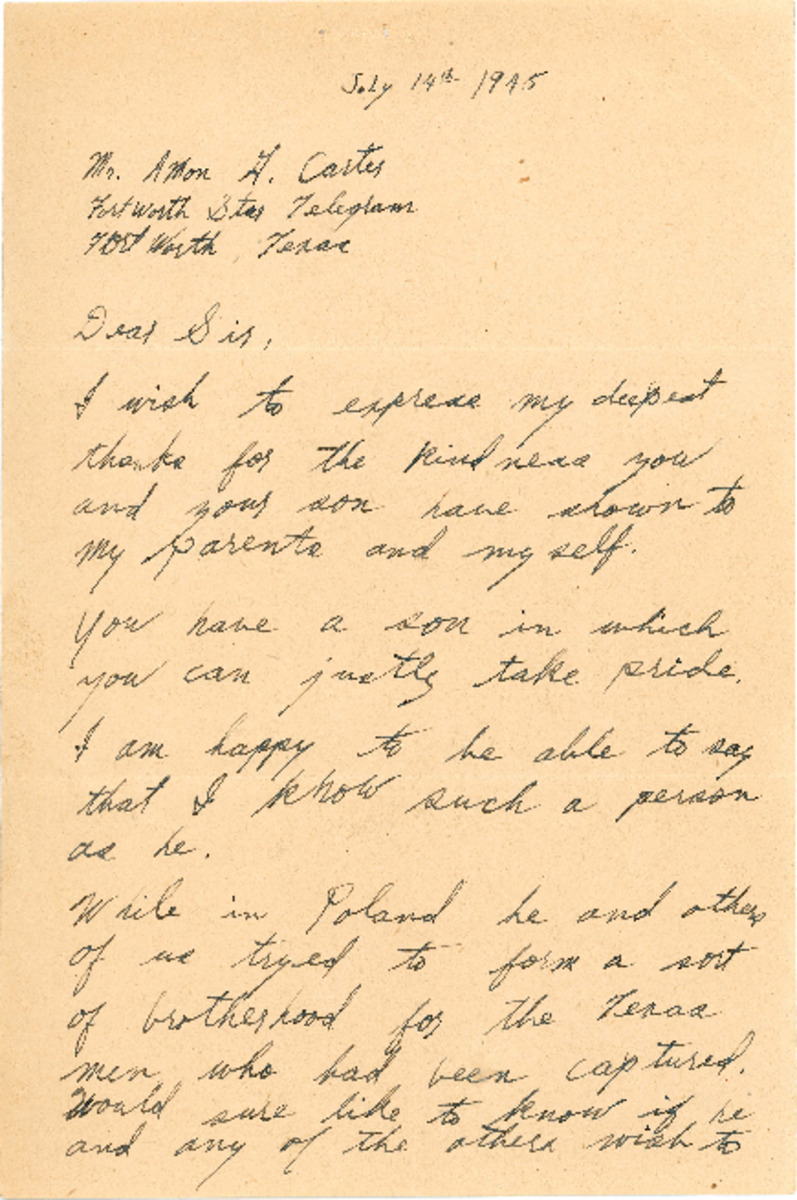 July 14th 1945
Mr. Amon G. Carter
Fort Worth Star Telegram
Fort Worth, Texas
Dear Sir,
I wish to express my deepest
thanks for the kindness you
and your son have shown to
my parents and myself.
You have a son in which
you can justly take pride.
I am happy to be able to say
that I know such a person
as he.
While in Poland he and others
of us tryed to form a sort
of brotherhood for the Texas
men who had been captured.
Would sure like to know if he
and any of the others wish to